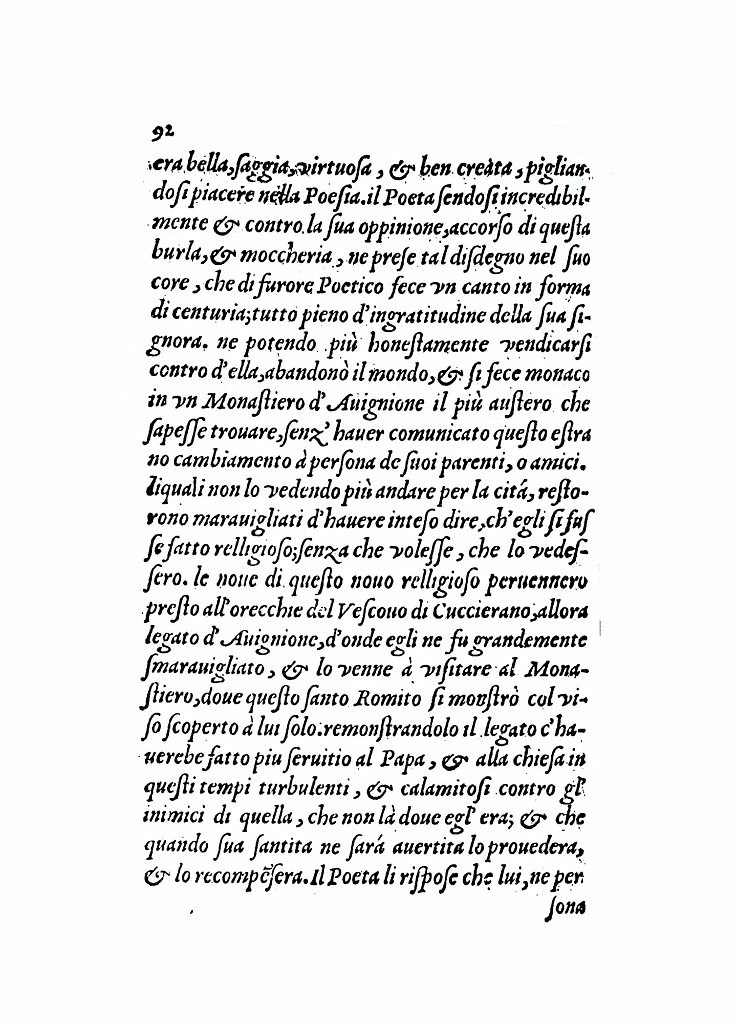 92
era bella, ſaggia, virtuoſa, & ben creata, piglian-
doſi piacere nella Poeſia. il Poeta ſendoſi incredibil-
mente & contro la ſua oppinione, accorſo di queſta
burla, & moccheria, ne preſe tal diſdegno nel ſuo
core, che di furore Poetico fece vn canto in forma
di centuria; tutto pieno d'ingratitudine della ſua ſi-
gnora. ne potendo più honeſtamente vendicarſi
contro d'ella, abandonò il mondo, & ſi fece monaco
in vn Monaſtiero d'Auignione il più auſtero che
ſapeſſe trouare, ſenz' hauer comunicato queſto eſtra
no cambiamento à perſona de ſuoi parenti, o amici.
liquali non lo vedendo più andare per la citá, reſto-
rono marauigliati d'hauere inteſo dire, ch'egli ſi fuſ
ſe fatto relligioſo; ſenza che voleſſe, che lo vedeſ-
ſero. le noue di queſto nouo relligioſo peruennero
preſto all'orecchie del Veſcouo di Cuccierano, allora
legato d'Auignione, d'onde egli ne fu grandemente
ſmarauigliato, & lo venne à viſitare al Mona-
ſtiero, doue queſto ſanto Romito ſi monſtrò col vi-
ſo ſcoperto à lui ſolo. remonſtrandolo il legato c'ha-
uerebe fatto piu ſeruitio al Papa, & alla chieſa in
queſti tempi turbulenti, & calamitoſi contro gl'
inimici di quella, che non là doue egl' era; & che
quando ſua ſantita ne ſará auertita lo prouedera,
& lo recompẽſera. Il Poeta li riſpoſe che lui, ne per
ſona